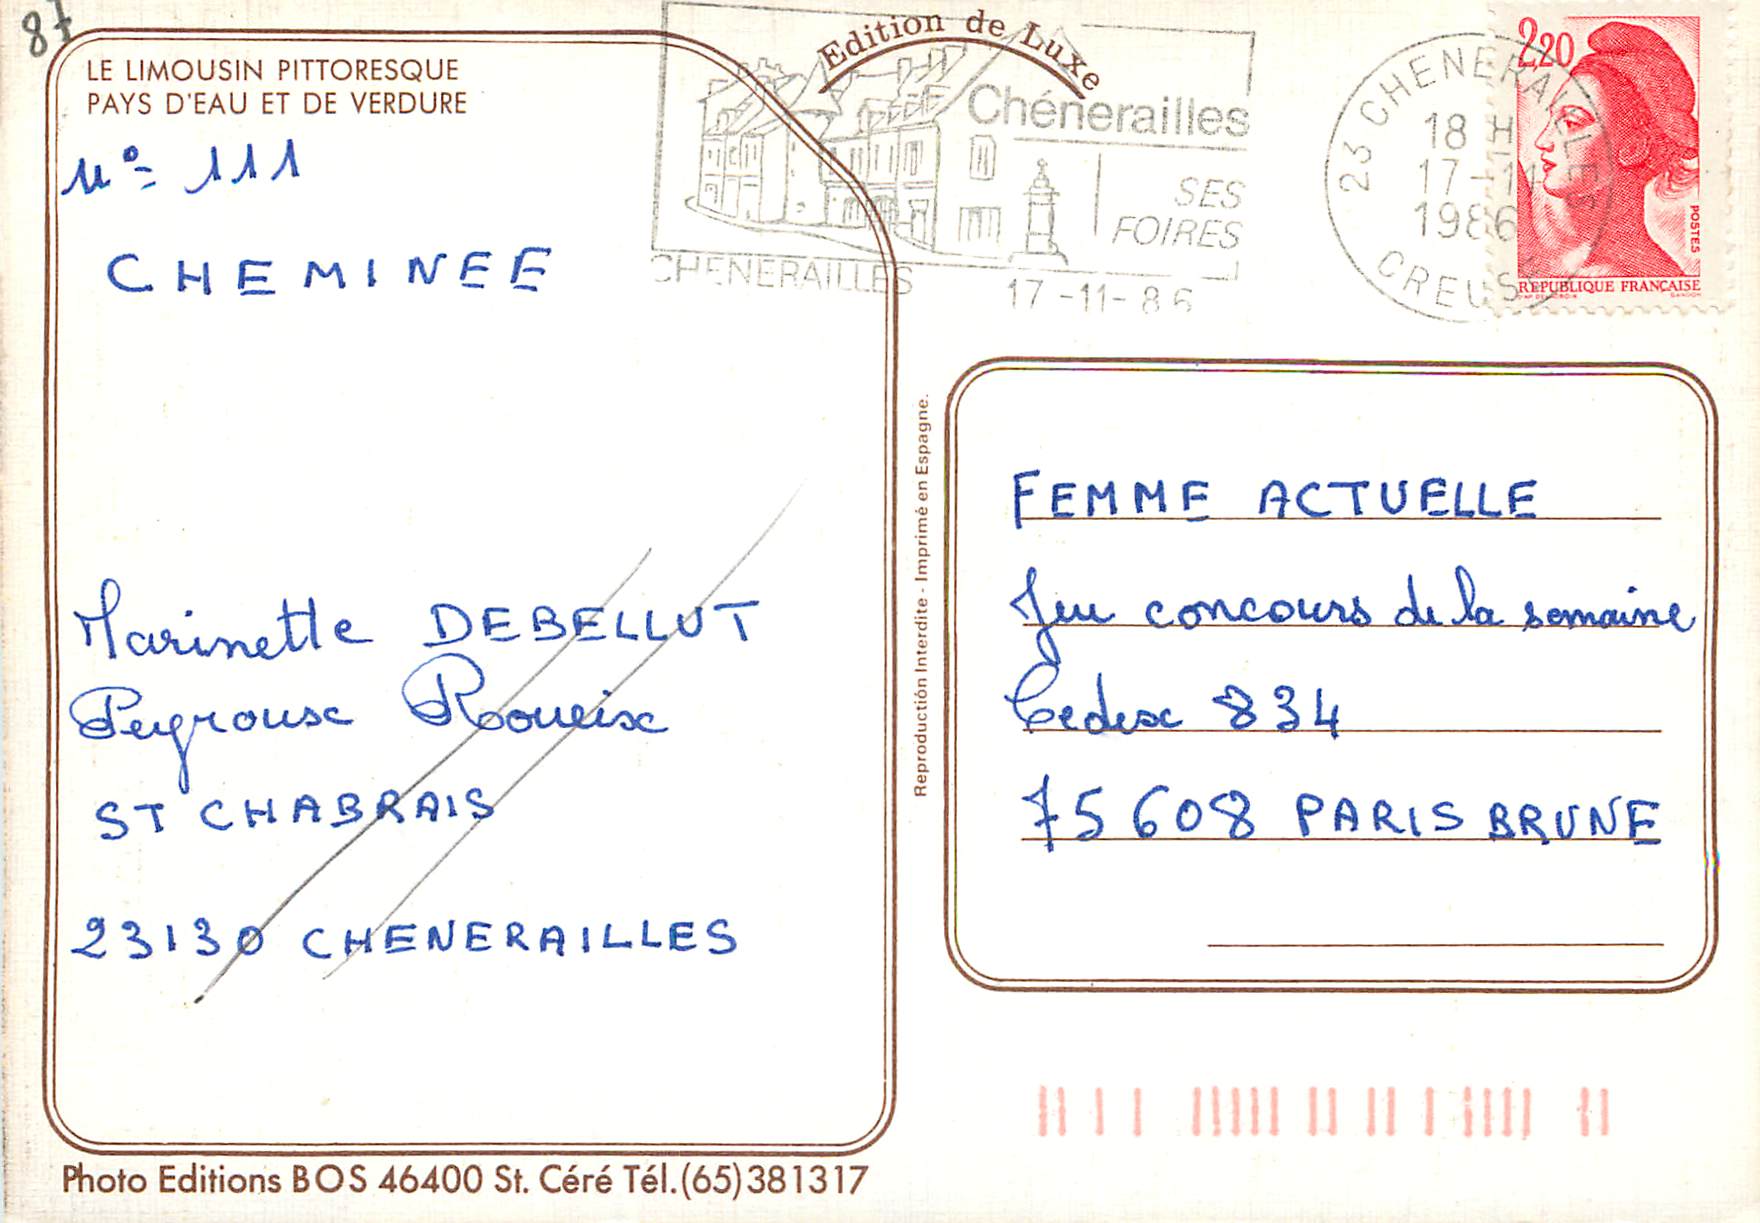 87
LE LIMOUSIN PITTORESQUE
PAYS D'EAU ET DE VERDURE
N° 111
CHEMINEE
Marinette DEBELLUT
Peyrouse Roueix
ST CHABRAIS
23130 CHENERAILLES
Photo Editions BOS 46400 St. Céré Tél.(65)381317
Edition de Luxe
Chénerailles
SES
FOIRES
CHENERAILLES
17-11-86
23 CHENERAILLES
18 H
17-11
1986
CREUSE
2,20
POSTES
REPUBLIQUE FRANÇAISE
Reproduction Interdite - Imprimé en Espagne.
FEMME ACTUELLE
Jeu concours de la semaine
Cedex 834
75608 PARIS BRUNE